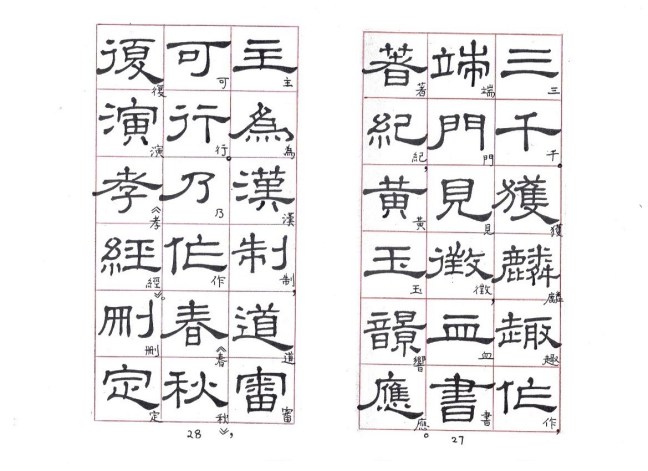 三千獲麟趣作
三千。獲麟趣作，
端門見徵血書
端門見徵，血書
著紀黃玉響應
著紀，黃玉響應。
27
主為漢制道審
主為漢制，道審
可行乃作春秋
可行。乃作《春秋》，
復演孝經刪定
復演《孝經》。刪定
28